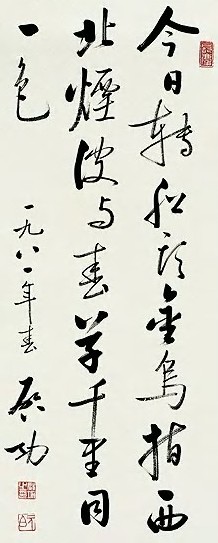 今日转船头金乌指西
北烟波与春草千里同
一色
一九八一年春
启功